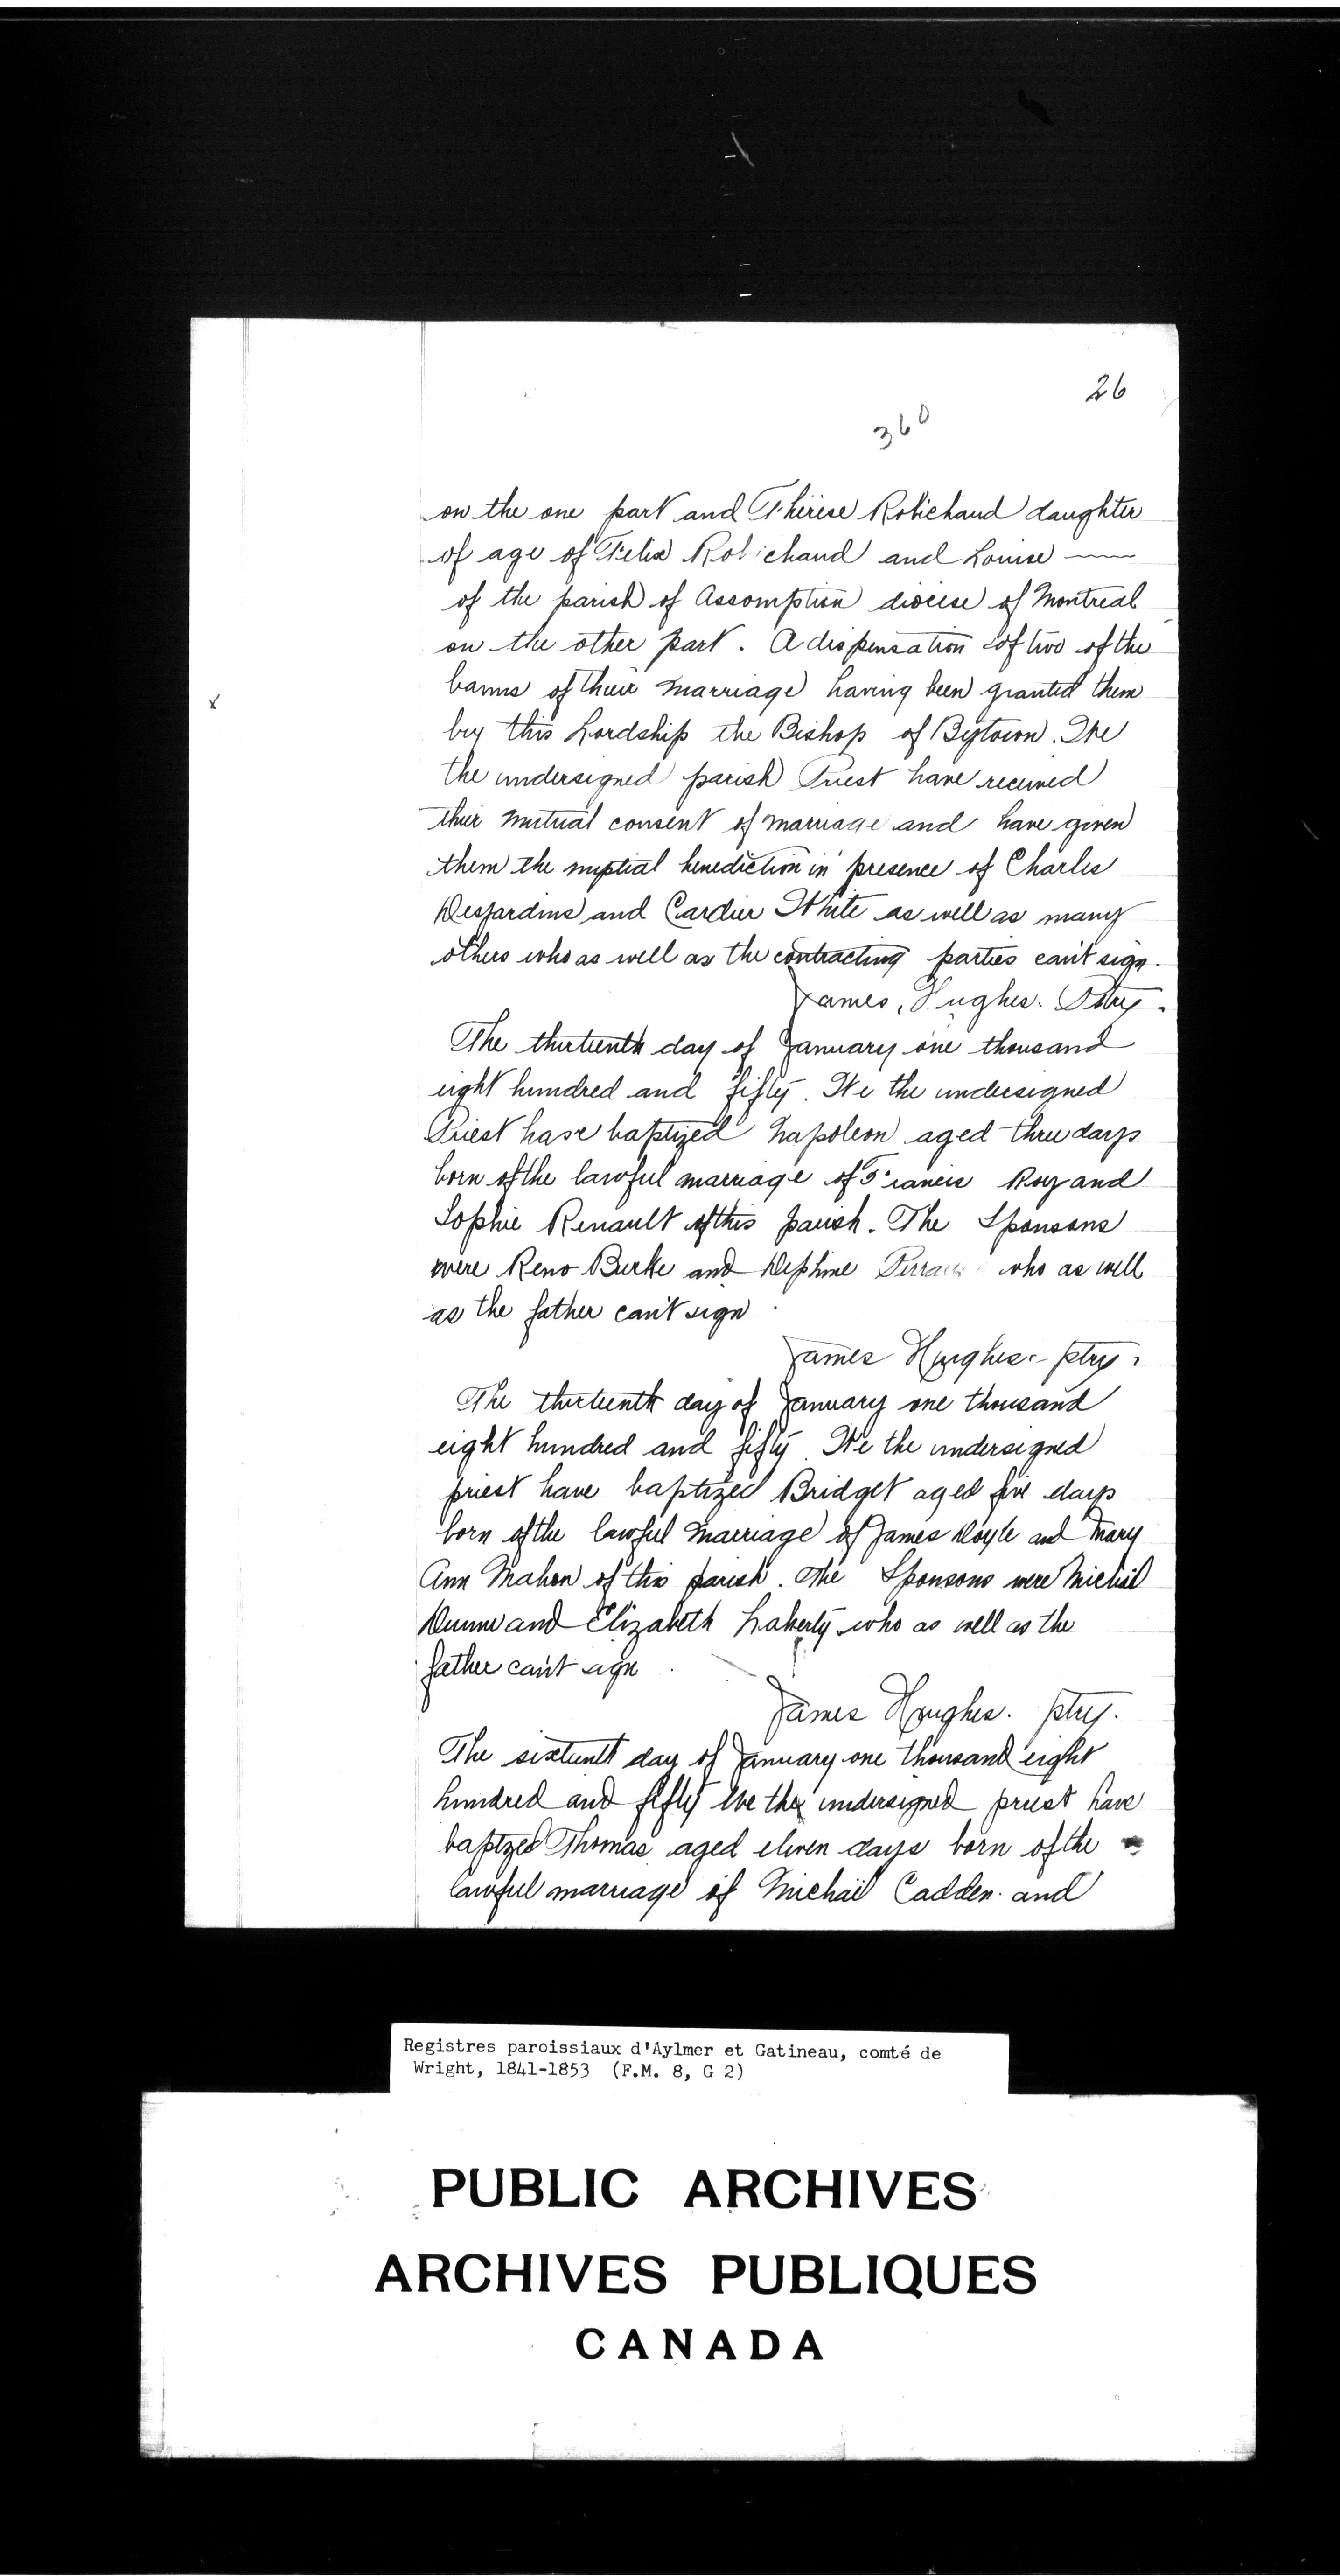 26
360
on the one part and Thérèse Robichaud daughter
of age of Felix Robichaud and Louise ——
of the parish of Assomption diocese of Montreal
on the other part. A dispensation of two of the
banns of their marriage having been granted them
by this Lordship the Bishop of Bytown. We
the undersigned parish Priest have received
their mutual consent of marriage and have given
them the nuptial benediction in presence of Charles
Desjardins and Cardier White as well as many
others who as well as the contracting parties can't sign.
James, Hughes. Ptry.
The thirteenth day of January one thousand
eight hundred and fifty. We the undersigned
Priest have baptized Napoleon aged three days
born of the lawful marriage of Francis Roy and
Sophie Renault of this parish. The Sponsons
were Reno Burke and Dephine who as well
as the father can't sign
James Hughes.- ptry.
The thirteenth day of January one thousand
eight hundred and fifty. We the undersigned
priest have baptized Bridget aged five days
born of the lawful marriage of James Doyle and Mary
Ann Mahon of this parish. The Sponsons were Michael
Dunne and Elizabeth Laherty who as well as the
father can't sign
James Hughes. ptry.
The sixteenth day of January one thousand eight
hundred and fifty We the undersigned priest have
baptzed Thomas aged eleven days born of the
lawful marriage of Michael Cadden. and
Registres paroissiaux d'Aylmer et Gatineau, comté de
Wright, 1841-1853 (F.M. 8, G 2)
PUBLIC ARCHIVES
ARCHIVES PUBLIQUES
CANADA